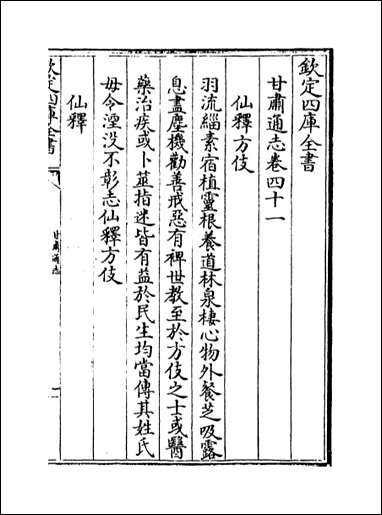 欽定四庫全書
甘肅通志卷四十一
仙釋方伎
羽流緇素宿植靈根養道林泉棲心物外餐芝吸露
息盡塵機勸善戒惡有裨世教至於方伎之士或醫
藥治疾或卜筮指迷皆有益於民生均當傳其姓氏
毋令湮没不彰志仙釋方伎
仙釋
欽定四庫全書
甘肅通志